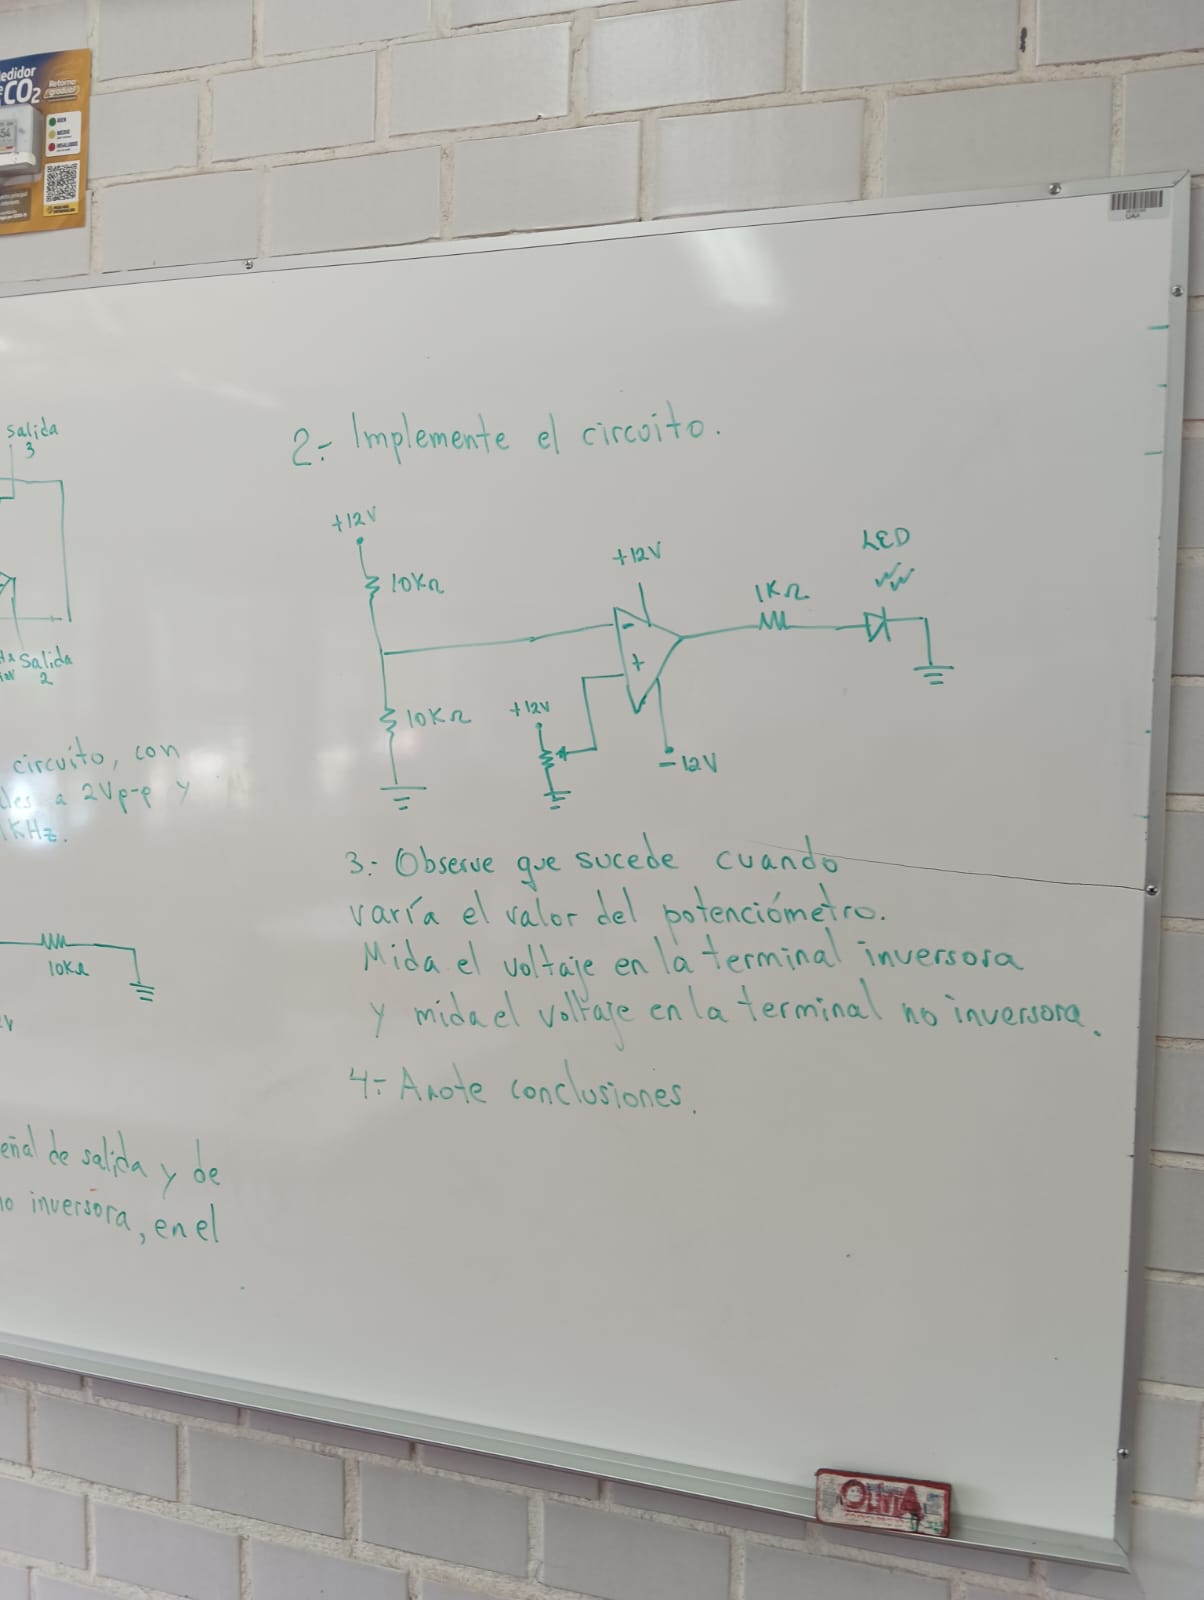 CO2
Retorno
gradual
Salida
3
Salida
2
circuito, con
a 2Vp-p y
1KHz.
10KΩ
de salida y de
no inversora, en el
2.- Implemente el circuito.
+12V
10KΩ
10KΩ
+12V
-
+
+12V
-12V
1KΩ
LED
3.- Observe que sucede cuando
varía el valor del potenciómetro.
Mida el voltaje en la terminal inversora
y mida el voltaje en la terminal no inversora.
4.- Anote conclusiones.
OLIVIA